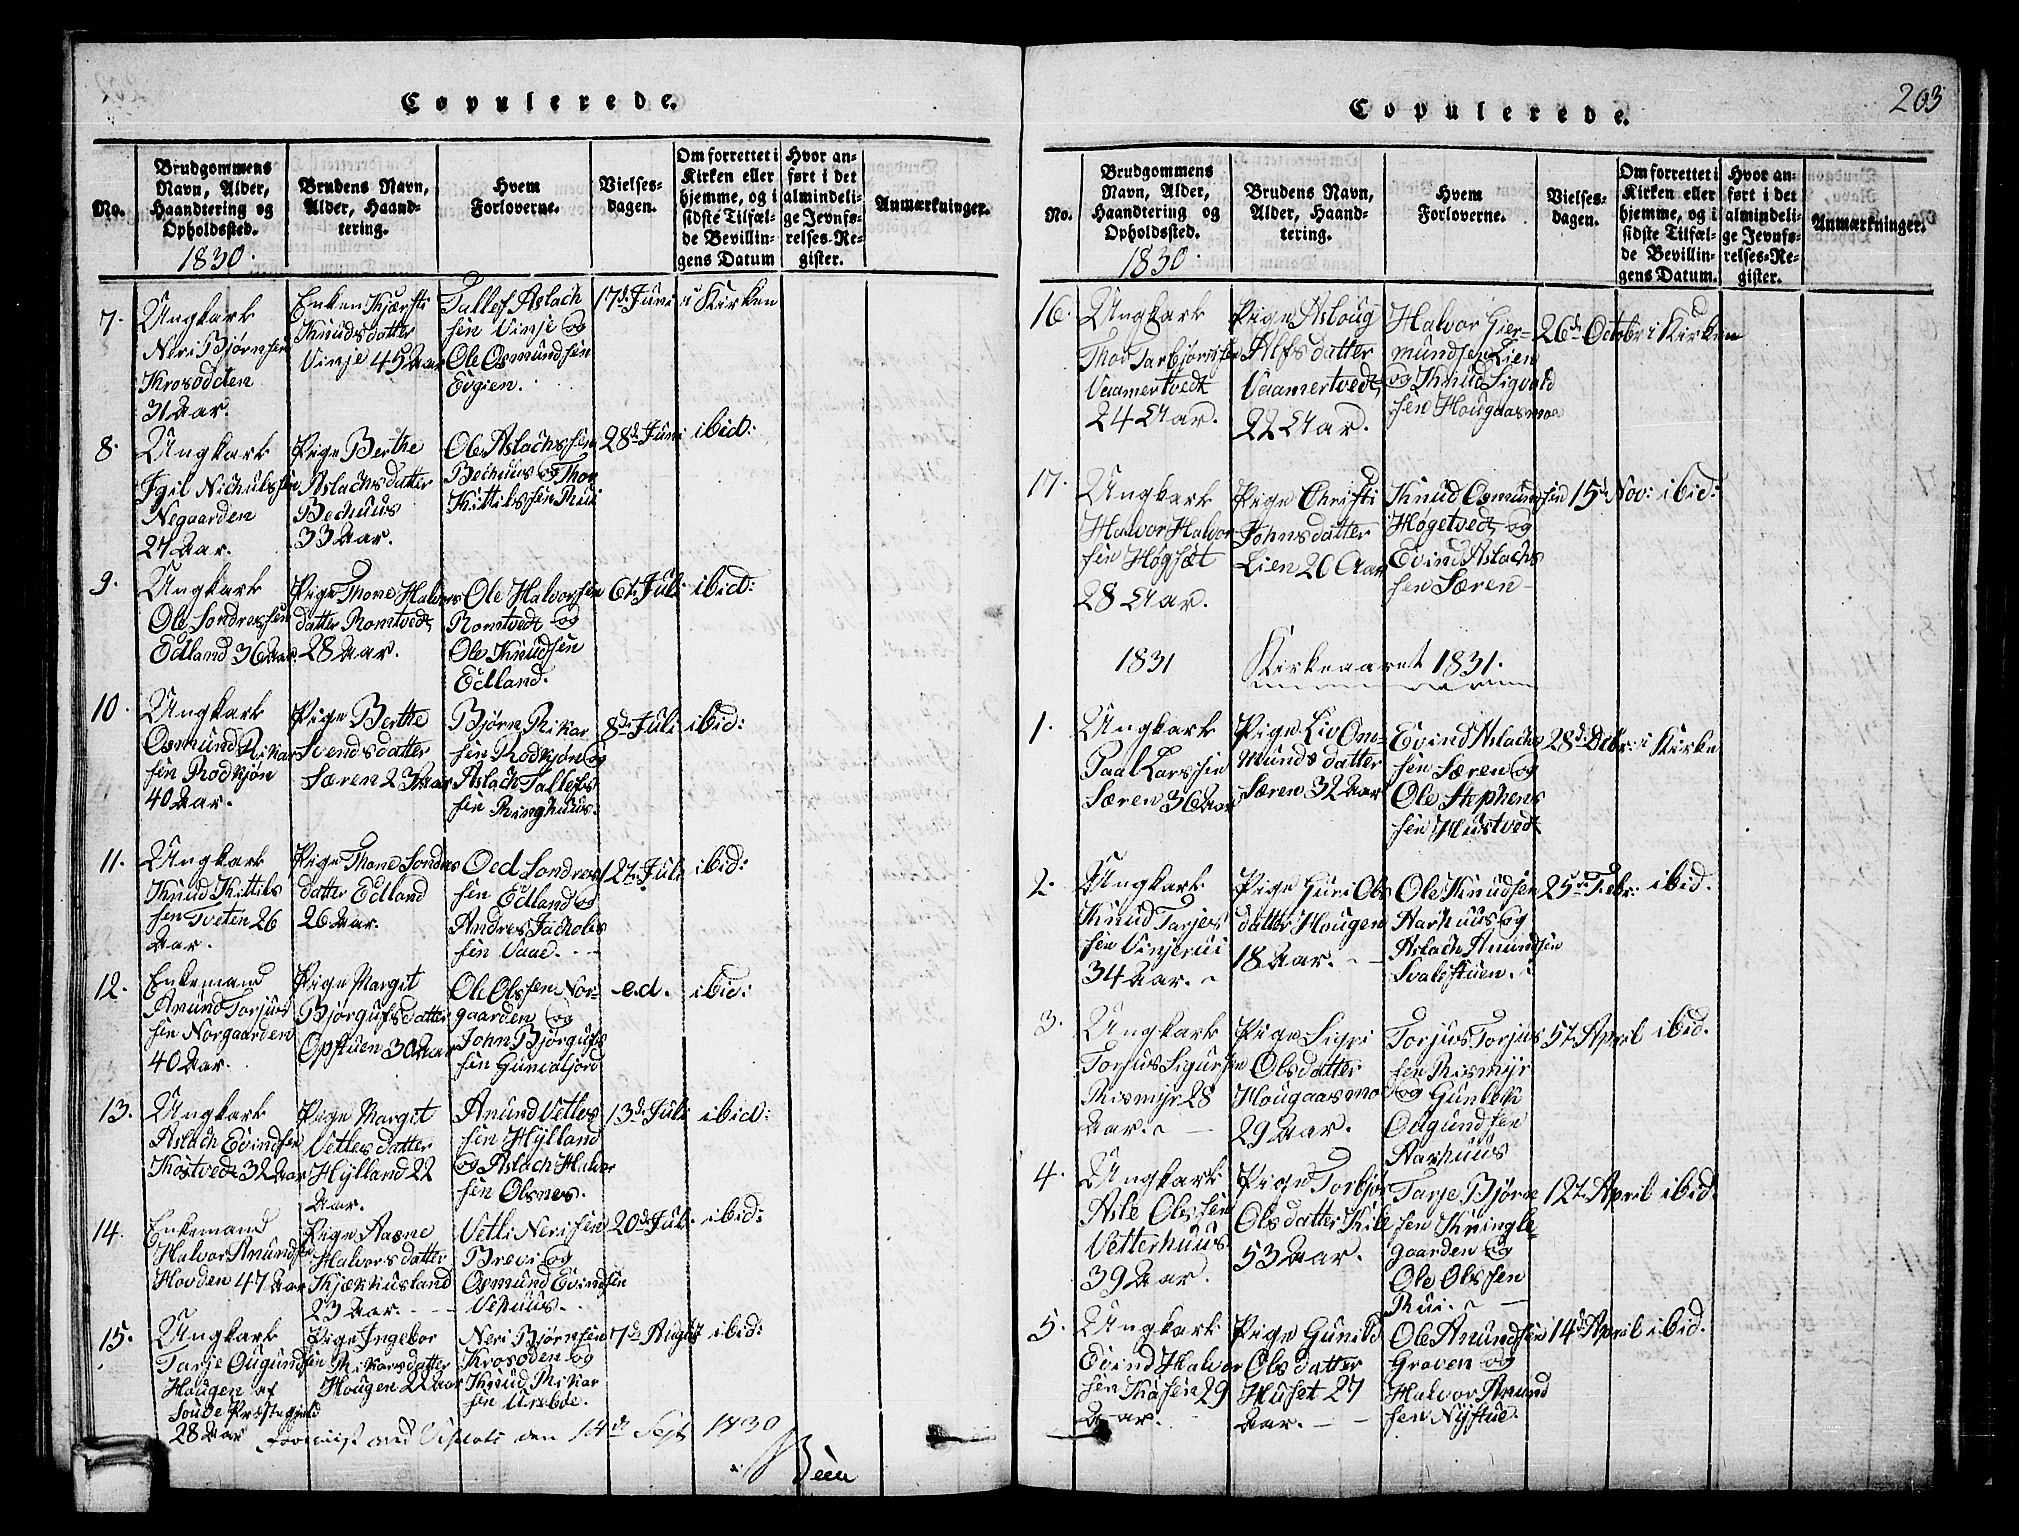 Copulerede.
No.
Brudgommens Navn, Alder, Haandtering og Opholdssted.
1830.
Brudens Navn, Alder, Haandtering.
Hvem Forloverne.
Vielsesdagen.
Om forrettet i Kirken eller hjemme, og i sidste Tilfælde Bevillingens Datum
Hvor anført i det almindelige Jevnførelses-Register.
Anmærkninger.
7.
Ungkark
Neri Bjørnsen
Krosodden
31 Aar.
Enken Kjærsti
Knudsdatter
Vinje 45 Aar
Tallef Aslach
sen Vinje og
Ole Osmundsen
Evgien.
17d. Juni
i Kirken
8.
Ungkark
Egil Nichulssen
Negaarden
27 Aar.
Pige Berthe
Aslachsdatter
Bechuus
33 Aar.
Ole Aslachssen
Bechuus og Thor
Kittilssen Rui
28d. Juni
ibid:
9.
Ungkark
Ole Sondressen
Edland 36 Aar.
Pige Thone Halvors
datter Romtvedt
28 Aar.
Ole Halvorsen
Romtvedt og
Ole Knudsen
Edland.
6t. Juli
ibid:
10.
Ungkark
Osmund Rikar
sen Rodkjøn
40 Aar.
Pige Berthe
Svendsdatter
Særen 23 Aar
Bjørn Rikar
sen Rodkjøn og
Aslach Tallefs
sen Ringhuus.
8de Juli
ibid:
11.
Ungkark
Knud Kittils
sen Tveten 26
Aar.
Pige Thone Sondres
datter Edland
26 Aar.
Oed Sondres
sen Edland og
Andres Jacholes
sen Vaae.
12te Juli
ibid:
12.
Enkemand
Amund Torjus
sen Norgaarden
40 Aar.
Pige Margit
Bjørgufsdatter
Opstuen 30 Aar
Ole Olssen Nor-
gaarden og
John Bjørgufs
sen Gunialjord
e.d.
ibid:
13.
Ungkark
Aslach Evindsen
Kostvedt 32 Aar
Pige Margit
Vetlesdatter
Hylland 22
Aar.
Anund Vetles
sen Hylland
og Aslach Halvor
sen Olsnes.
13de Juli
ibid:
14.
Enkemand
Halvor Anundsen
Hovden 47 Aar
Pige Aasne
Halvorsdatter
Kjækkusland
23 Aar.
Vetli Nerisen
Brevi og
Osmund Evindsen
Vehuus.
20de Juli
ibid:
15.
Ungkark
Tarje Ougundsen
Hougen af
Soude Præstegjeld
28 Aar
Pige Ingebor
Rikarsdatter
Hougen 22 Aar
Neri Bjørnsen
Krosoden og
Knud Rikar
sen Urabøe.
7de August
ibid:
den 14de Sept 1830

203
Copulerede.
No.
Brudgommens Navn, Alder, Haandtering og Opholdssted.
1830.
Brudens Navn, Alder, Haandtering.
Hvem Forloverne.
Vielsesdagen.
Om forrettet i Kirken eller hjemme, og i sidste Tilfælde Bevillingens Datum.
Hvor anført i det almindelige Jevnførelses-Register.
Anmærkninger.
16.
Ungkark
Thor Tarbjørnsen
Vaamertvedt
24 Aar.
Pige Asloug
Alfsdatter
Vaamertvedt
22 Aar.
Halvor Gier-
mundsen Lien
og Knud Sigvald
sen Hougaasmoe
26de Octobr
i Kirken
17.
Ungkark
Halvor Halvor
sen Høgsæt
28 Aar.
Pige Christi
Johnsdatter
Lien 20 Aar
Knud Osmundsen
Høgetvedt og
Evind Aslachs
sen Særen
15d Nov:
ibid:
1831
Kirkeaaret 1831.
1.
Ungkark
Paal Larssen
Særen 36 Aar
Pige Liv Om-
mundsdatter
Særen 32 Aar
Evind Aslachs
sen Særen og
Ole Stephens
sen Mustvedt
28d. Debr:
i Kirke
2.
Ungkark
Knud Tarjes
sen Vinjerui
34 Aar.
Pige Guri Ols
datter Hougen
18 Aar.
Ole Knudsen
Aarhuus og
Aslach Amundsen
Svalestuen.
25de Febr:
ibid.
3.
Ungkark
Torjus Sigursen
Rismyr 28
Aar.
Pige Sigri
Olsdatter
Hougaasmo
29 Aar.
Torjus Torjus
sen Rismyr
og Gunleik
Ougundsen
Aarhuus
5te April
ibid.
4.
Ungkark
Asle Olssen
Vetterhuus
39 Aar.
Pige Torbjør
Olsdatter Kile
53 Aar.
Tarje Bjørn
sen Kringle
gaarden og
Ole Olssen
Rui.
12te April
ibid.
5.
Ungkark
Evind Halvor
sen Kaasen 29
Aar.
Pige Gunild
Olsdatter
Huset 27
Aar.
Ole Anundsen
Groven og
Halvor Anund
sen Nystue.
14de April
ibid.